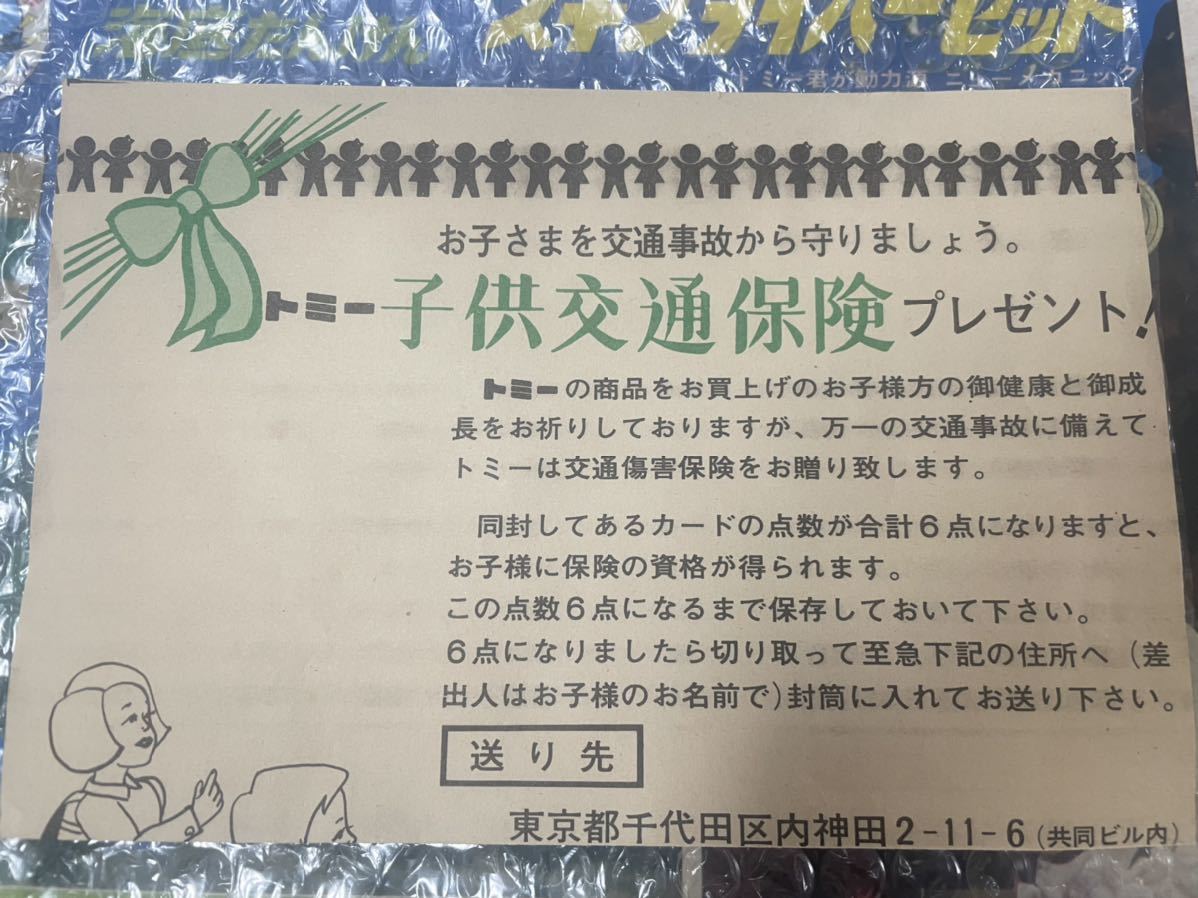 スキンダイバーセット
トミー君が動力源 ニューメカニック
お子さまを交通事故から守りましょう。
トミー子供交通保険プレゼント!
トミーの商品をお買上げのお子様方の御健康と御成
長をお祈りしておりますが、万一の交通事故に備えて
トミーは交通傷害保険をお贈り致します。
同封してあるカードの点数が合計6点になりますと、
お子様に保険の資格が得られます。
この点数6点になるまで保存しておいて下さい。
6点になりましたら切り取って至急下記の住所へ(差
出人はお子様のお名前で)封筒に入れてお送り下さい。
送り先
東京都千代田区内神田2-11-6(共同ビル内)